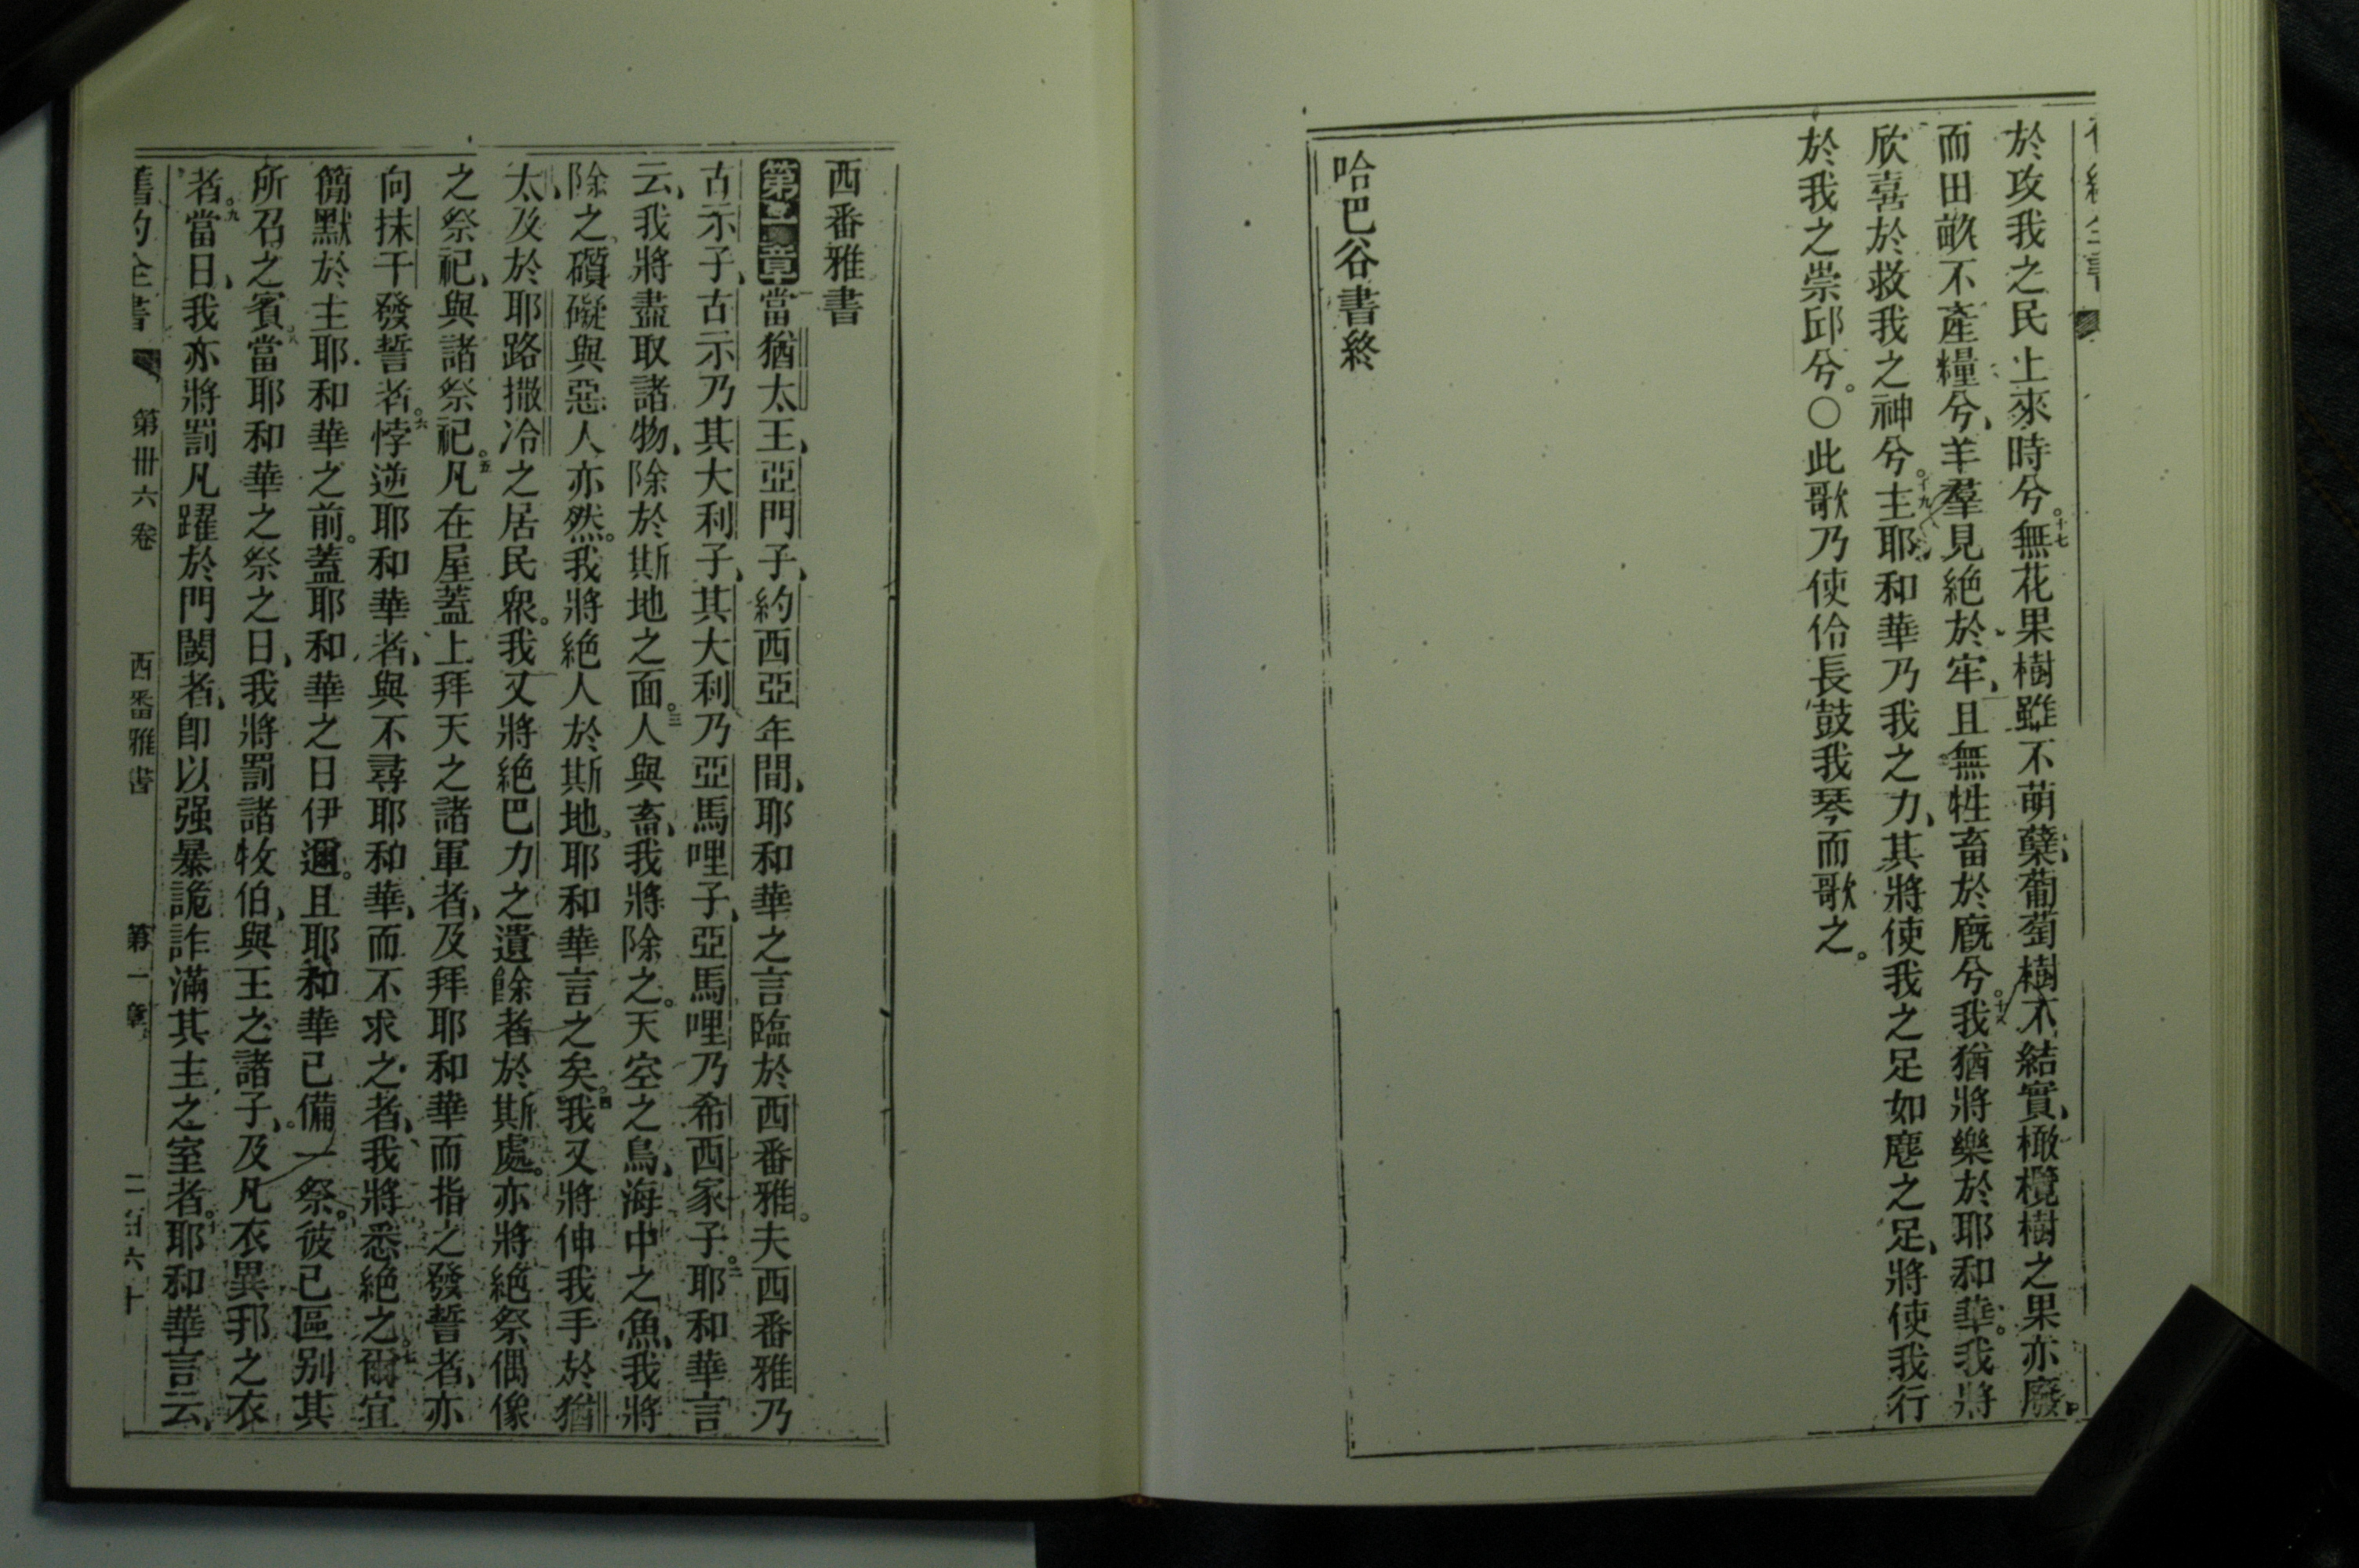 於攻我之民上來時兮。十七無花果樹雖不萌蘖、葡萄樹不結實、橄欖樹之果亦廢。
而田畝不產糧兮、羊羣見絕於牢、且無牲畜於廐兮。十八我猶將樂於耶和華。我將
欣喜於救我之神兮。十九主耶和華乃我之力、其將使我之足如麀之足、將使我行
於我之崇邱兮。〇此歌乃使伶長鼓我琴而歌之。
哈巴谷書終
西番雅書
第一章當猶太王、亞門子、約西亞年間、耶和華之言臨於西番雅。夫西番雅乃
古示子、古示乃其大利子、其大利乃亞馬哩子、亞馬哩乃希西家子。二耶和華言
云、我將盡取諸物、除於斯地之面。三人與畜、我將除之。天空之鳥、海中之魚、我將
除之。礩礙與惡人亦然。我將絕人於斯地。耶和華言之矣。四我又將伸我手於猶
太、及於耶路撒冷之居民衆。我又將絕巴力之遺餘者於斯處。亦將絕祭偶像
之祭祀、與諸祭祀。五凡在屋蓋上拜天之諸軍者、及拜耶和華而指之發誓者、亦
向抹干發誓者。六悖逆耶和華者、與不尋耶和華、而不求之者、我將悉絕之。七爾宜
簡默於主耶和華之前。蓋耶和華之日伊邇。且耶和華已備一祭。彼已區别其
所召之賓。八當耶和華之祭之日、我將罰諸牧伯、與王之諸子、及凡衣異邦之衣
者。九當日、我亦將罰凡躍於門閾者、卽以强暴詭詐滿其主之室者。十耶和華言云、
舊約全書 第卅六卷 西番雅書 第一章 二百六十